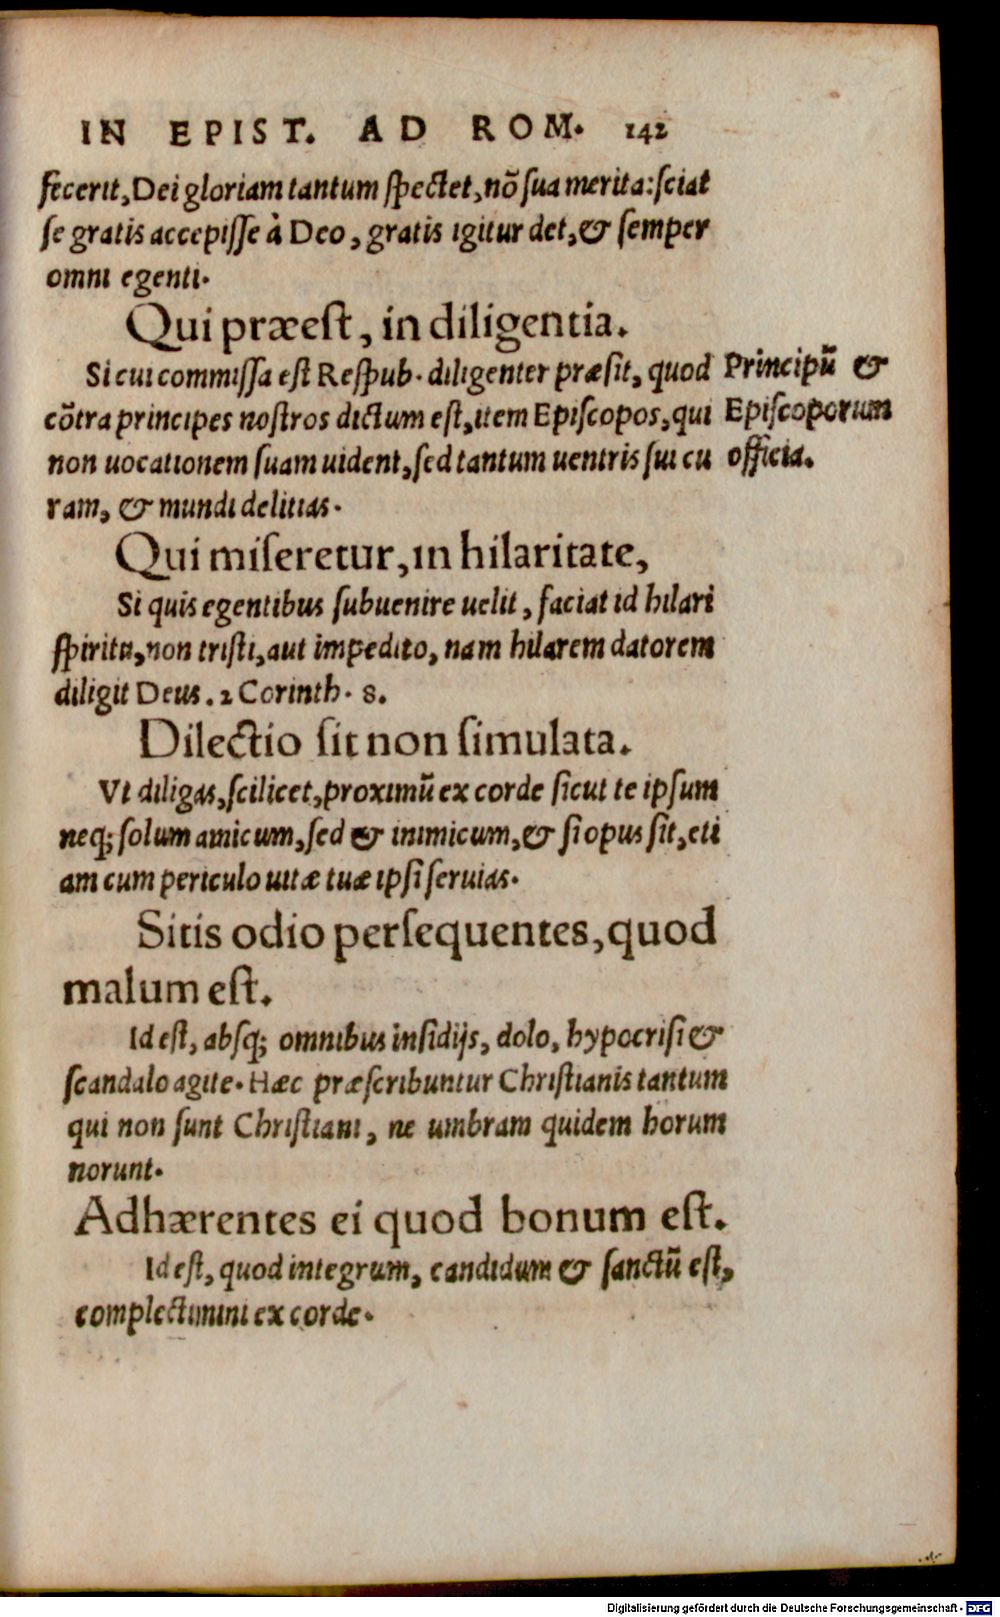 IN EPIST. AD ROM. 142
fecerit, Dei gloriam tantum ſpectet, nõ ſua merita: ſciat
ſe gratis accepiſſe à Deo, gratis igitur det, & ſemper
omni egenti.
Qui præeſt, in diligentia.
Si cui commiſſa eſt Reſpub. diligenter præſit, quod
cõtra principes noſtros dictum eſt, item Epiſcopos, qui
non uocationem ſuam uident, ſed tantum uentris ſui cu
ram, & mundi delitias.
Principũ &
Epiſcoporum
officia.
Qui miſeretur, in hilaritate,
Si quis egentibus ſubuenire uelit, faciat id hilari
ſpiritu, non triſti, aut impedito, nam hilarem datorem
diligit Deus. 2 Corinth. 8.
Dilectio ſit non ſimulata.
Vt diligas, ſcilicet, proximũ ex corde ſicut te ipſum
neq; ſolum amicum, ſed & inimicum, & ſi opus ſit, eti
am cum periculo uitæ tuæ ipſi ſeruias.
Sitis odio perſequentes, quod
malum eſt.
Id eſt, abſq; omnibus inſidijs, dolo, hypocriſi &
ſcandalo agite. Hæc præſcribuntur Chriſtianis tantum
qui non ſunt Chriſtiani, ne umbram quidem horum
norunt.
Adhærentes ei quod bonum eſt.
Id eſt, quod integrum, candidum & ſanctũ eſt,
complectimini ex corde.
Digitalisierung gefördert durch die Deutsche Forschungsgemeinschaft - DFG